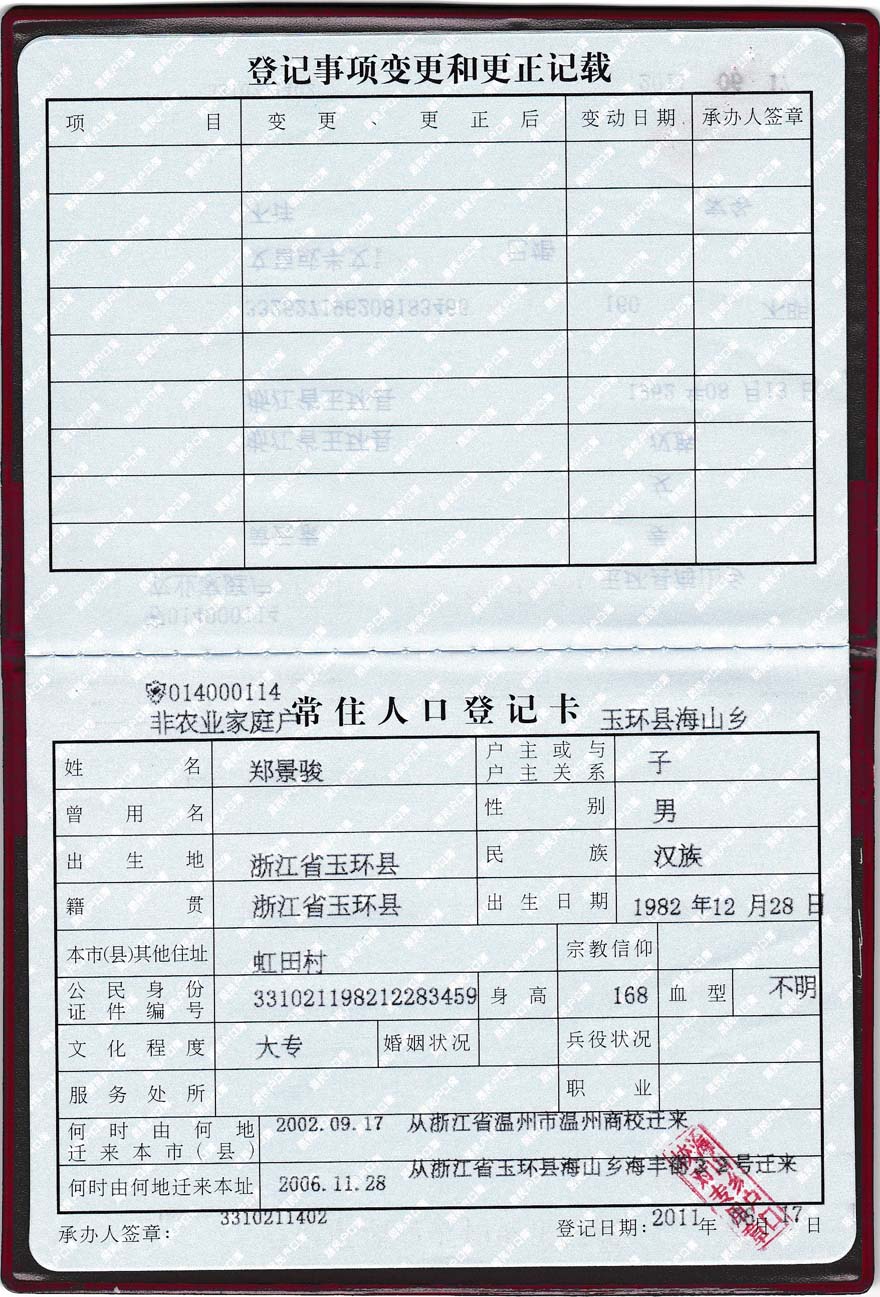 登记事项变更和更正记载
项目 变更、更正后 变动日期 承办人签章
014000114
非农业家庭户 常住人口登记卡 玉环县海山乡
姓名 郑景骏 户主或与户主关系 子
曾用名 性别 男
出生地 浙江省玉环县 民族 汉族
籍贯 浙江省玉环县 出生日期 1982年12月28日
本市(县)其他住址 虹田村 宗教信仰
公民身份证件编号 331021198212283459 身高 168 血型 不明
文化程度 大专 婚姻状况 兵役状况
服务处所 职业
何时由何地迁来本市(县) 2002.09.17 从浙江省温州市温州商校迁来
何时由何地迁来本址 2006.11.28 从浙江省玉环县海山乡海丰街22号迁来
承办人签章: 3310211402 登记日期: 2011年 月17日